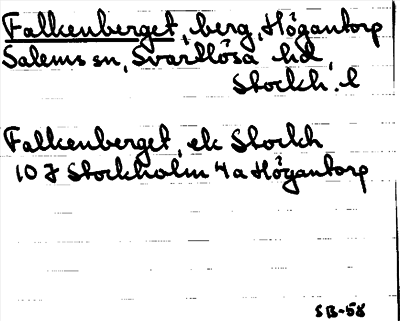 Falkenberget, berg, Högantorp
Salems sn, Svartlösa hd,
Stockh. l
Falkenberget, ek Stockh
10 I Stockholm 4a Högantorp
SB-58